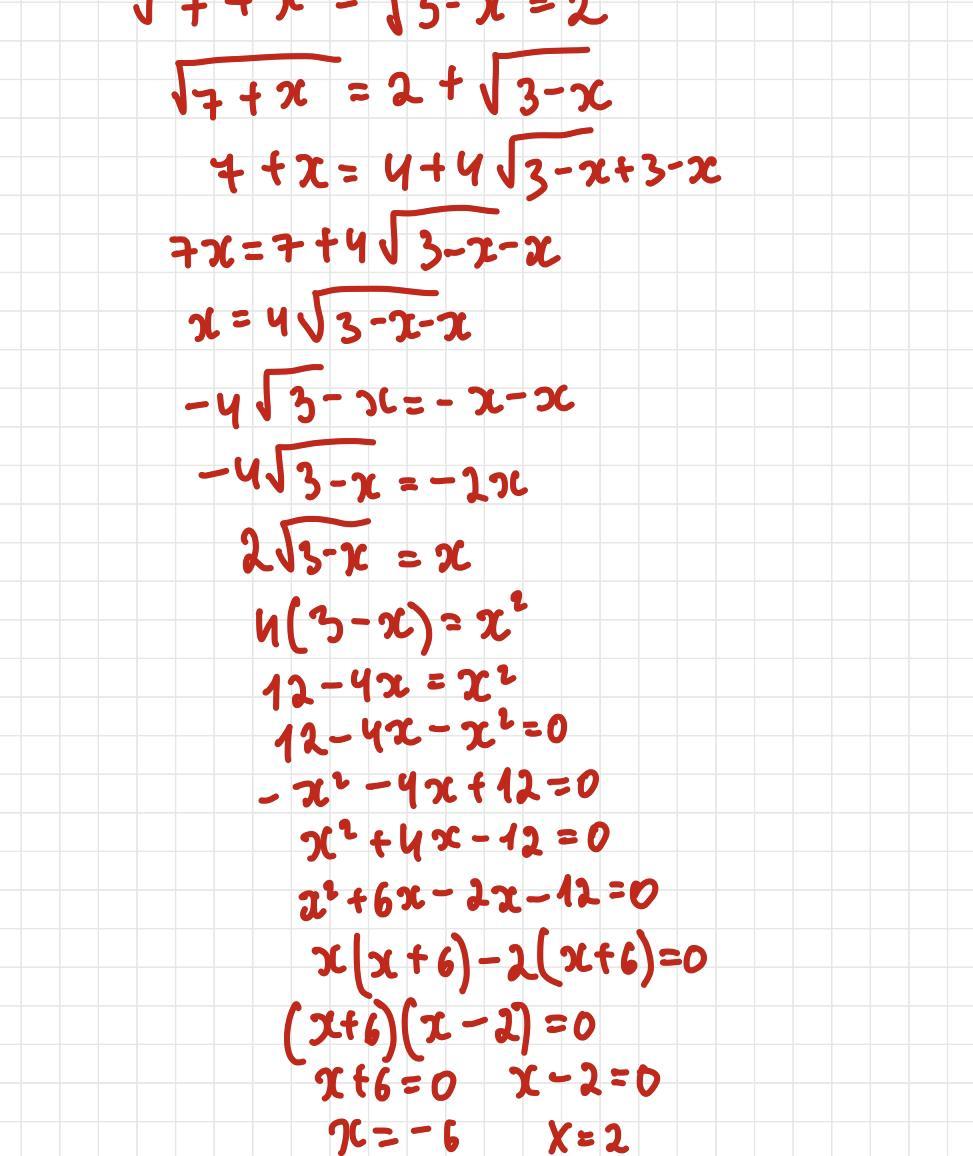 √7 + x - √3 - x = 2
√7 + x = 2 + √3 - x
7 + x = 4 + 4 √3 - x + 3 - x
7x = 7 + 4 √3 - x - x
x = 4 √3 - x - x
-4 √3 - x = - x - x
-4 √3 - x = -2x
2 √3 - x = x
4(3 - x) = x²
12 - 4x = x²
12 - 4x - x² = 0
- x² - 4x + 12 = 0
x² + 4x - 12 = 0
x² + 6x - 2x - 12 = 0
x(x + 6) - 2(x + 6) = 0
(x + 6)(x - 2) = 0
x + 6 = 0 x - 2 = 0
x = -6 x = 2